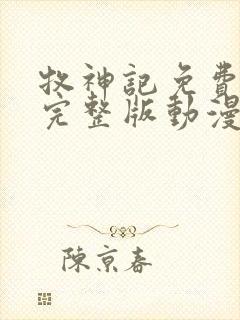 牧神記免費
完整版動漫
陳京春